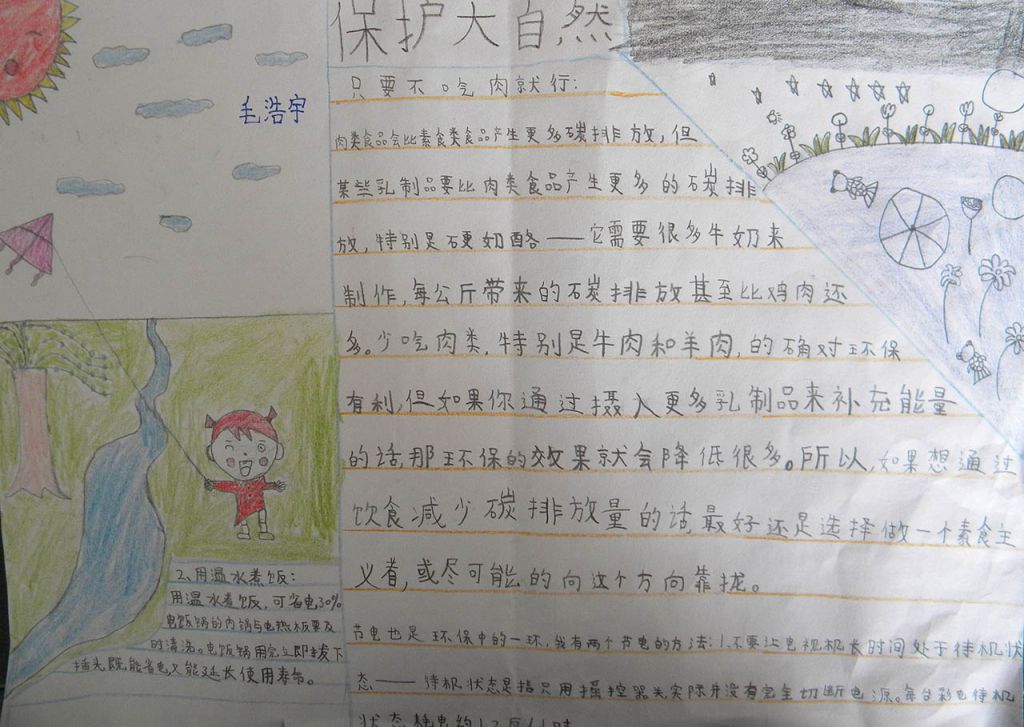 保护大自然
毛浩宇
只要不吃肉就行:
肉类食品会比素食类食品产生更多碳排放,但
某些乳制品要比肉类食品产生更多的碳排
放,特别是硬奶酪——它需要很多牛奶来
制作,每公斤带来的碳排放甚至比鸡肉还
多。少吃肉类,特别是牛肉和羊肉,的确对环保
有利,但如果你通过摄入更多乳制品来补充能量
的话那环保的效果就会降低很多。所以,如果想通过
饮食减少碳排放量的话,最好还是选择做一个素食主
义者,或尽可能的向这个方向靠拢。
节电也是环保中的一环,我有两个节电的方法:1.不要让电视机长时间处于待机状
态——待机状态是指只用摇控器关实际并没有完全切断电源。每台彩电待机
状态耗电约1.2度/小时
2、用温水煮饭:
用温水煮饭,可省电30%
电饭锅的内锅与电热板要及
时清洗。电饭锅用完立即拔下
插头既能省电又能延长使用寿命。